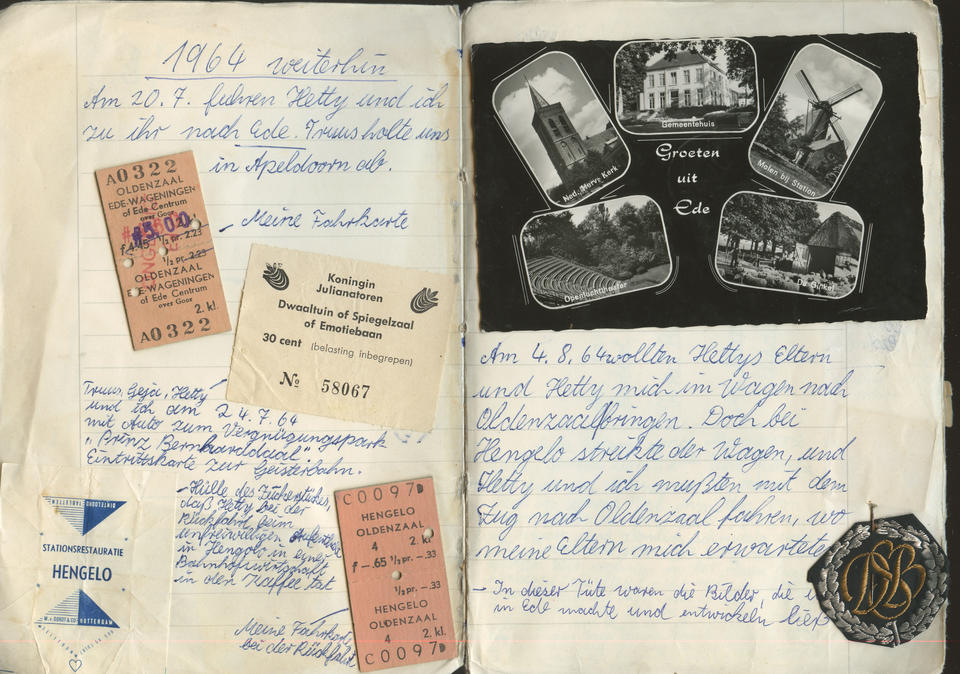 1964 weiterhin
Am 20.7. fuhren Hetty und ich
zu ihr nach Ede. Truus holte uns
in Apeldoorn ab.
A0322
OLDENZAAL
EDE-WAGENINGEN
of Ede Centrum
over Goor
f 4.45 ½ pr. 2.23
½ pr. 2.23
OLDENZAAL
EDE-WAGENINGEN
of Ede Centrum
over Goor
2. kl.
A0322
Meine Fahrkarte
Koningin
Julianatoren
Dwaaltuin of Spiegelzaal
of Emotiebaan
30 cent (belasting inbegrepen)
No 58067
Truus, Geja, Hetty
und ich am 24.7.64
mit Auto zum Vergnügungspark
"Prinz Bernharddaal"
Eintrittskarte zur Geisterbahn.
STATIONSRESTAURATIE
HENGELO
ROTTERDAM
- Hülle des Zuckerstückes,
daß Hetty bei der
Rückfahrt beim
unfreiwilligen Aufenthalt
in Hengelo in einer
Bahnhofswirtschaft
in den Kaffee tat
C0097D
HENGELO
OLDENZAAL
4 2. kl.
f -.65 ½ pr. -.33
½ pr. -.33
HENGELO
OLDENZAAL
4 2. kl.
C0097D
Meine Fahrkarte
bei der Rückfahrt
Gemeentehuis
Ned. Herv. Kerk
Molen bij Station
Groeten
uit
Ede
Openluchttheater
De Ginkel
Am 4.8.64 wollten Hettys Eltern
und Hetty mich im Wagen nach
Oldenzaal bringen. Doch bei
Hengelo streikte der Wagen, und
Hetty und ich mußten mit dem
Zug nach Oldenzaal fahren, wo
meine Eltern mich erwartete
- In dieser Tüte waren die Bilder, die
in Ede machte und entwickeln ließ
DSB